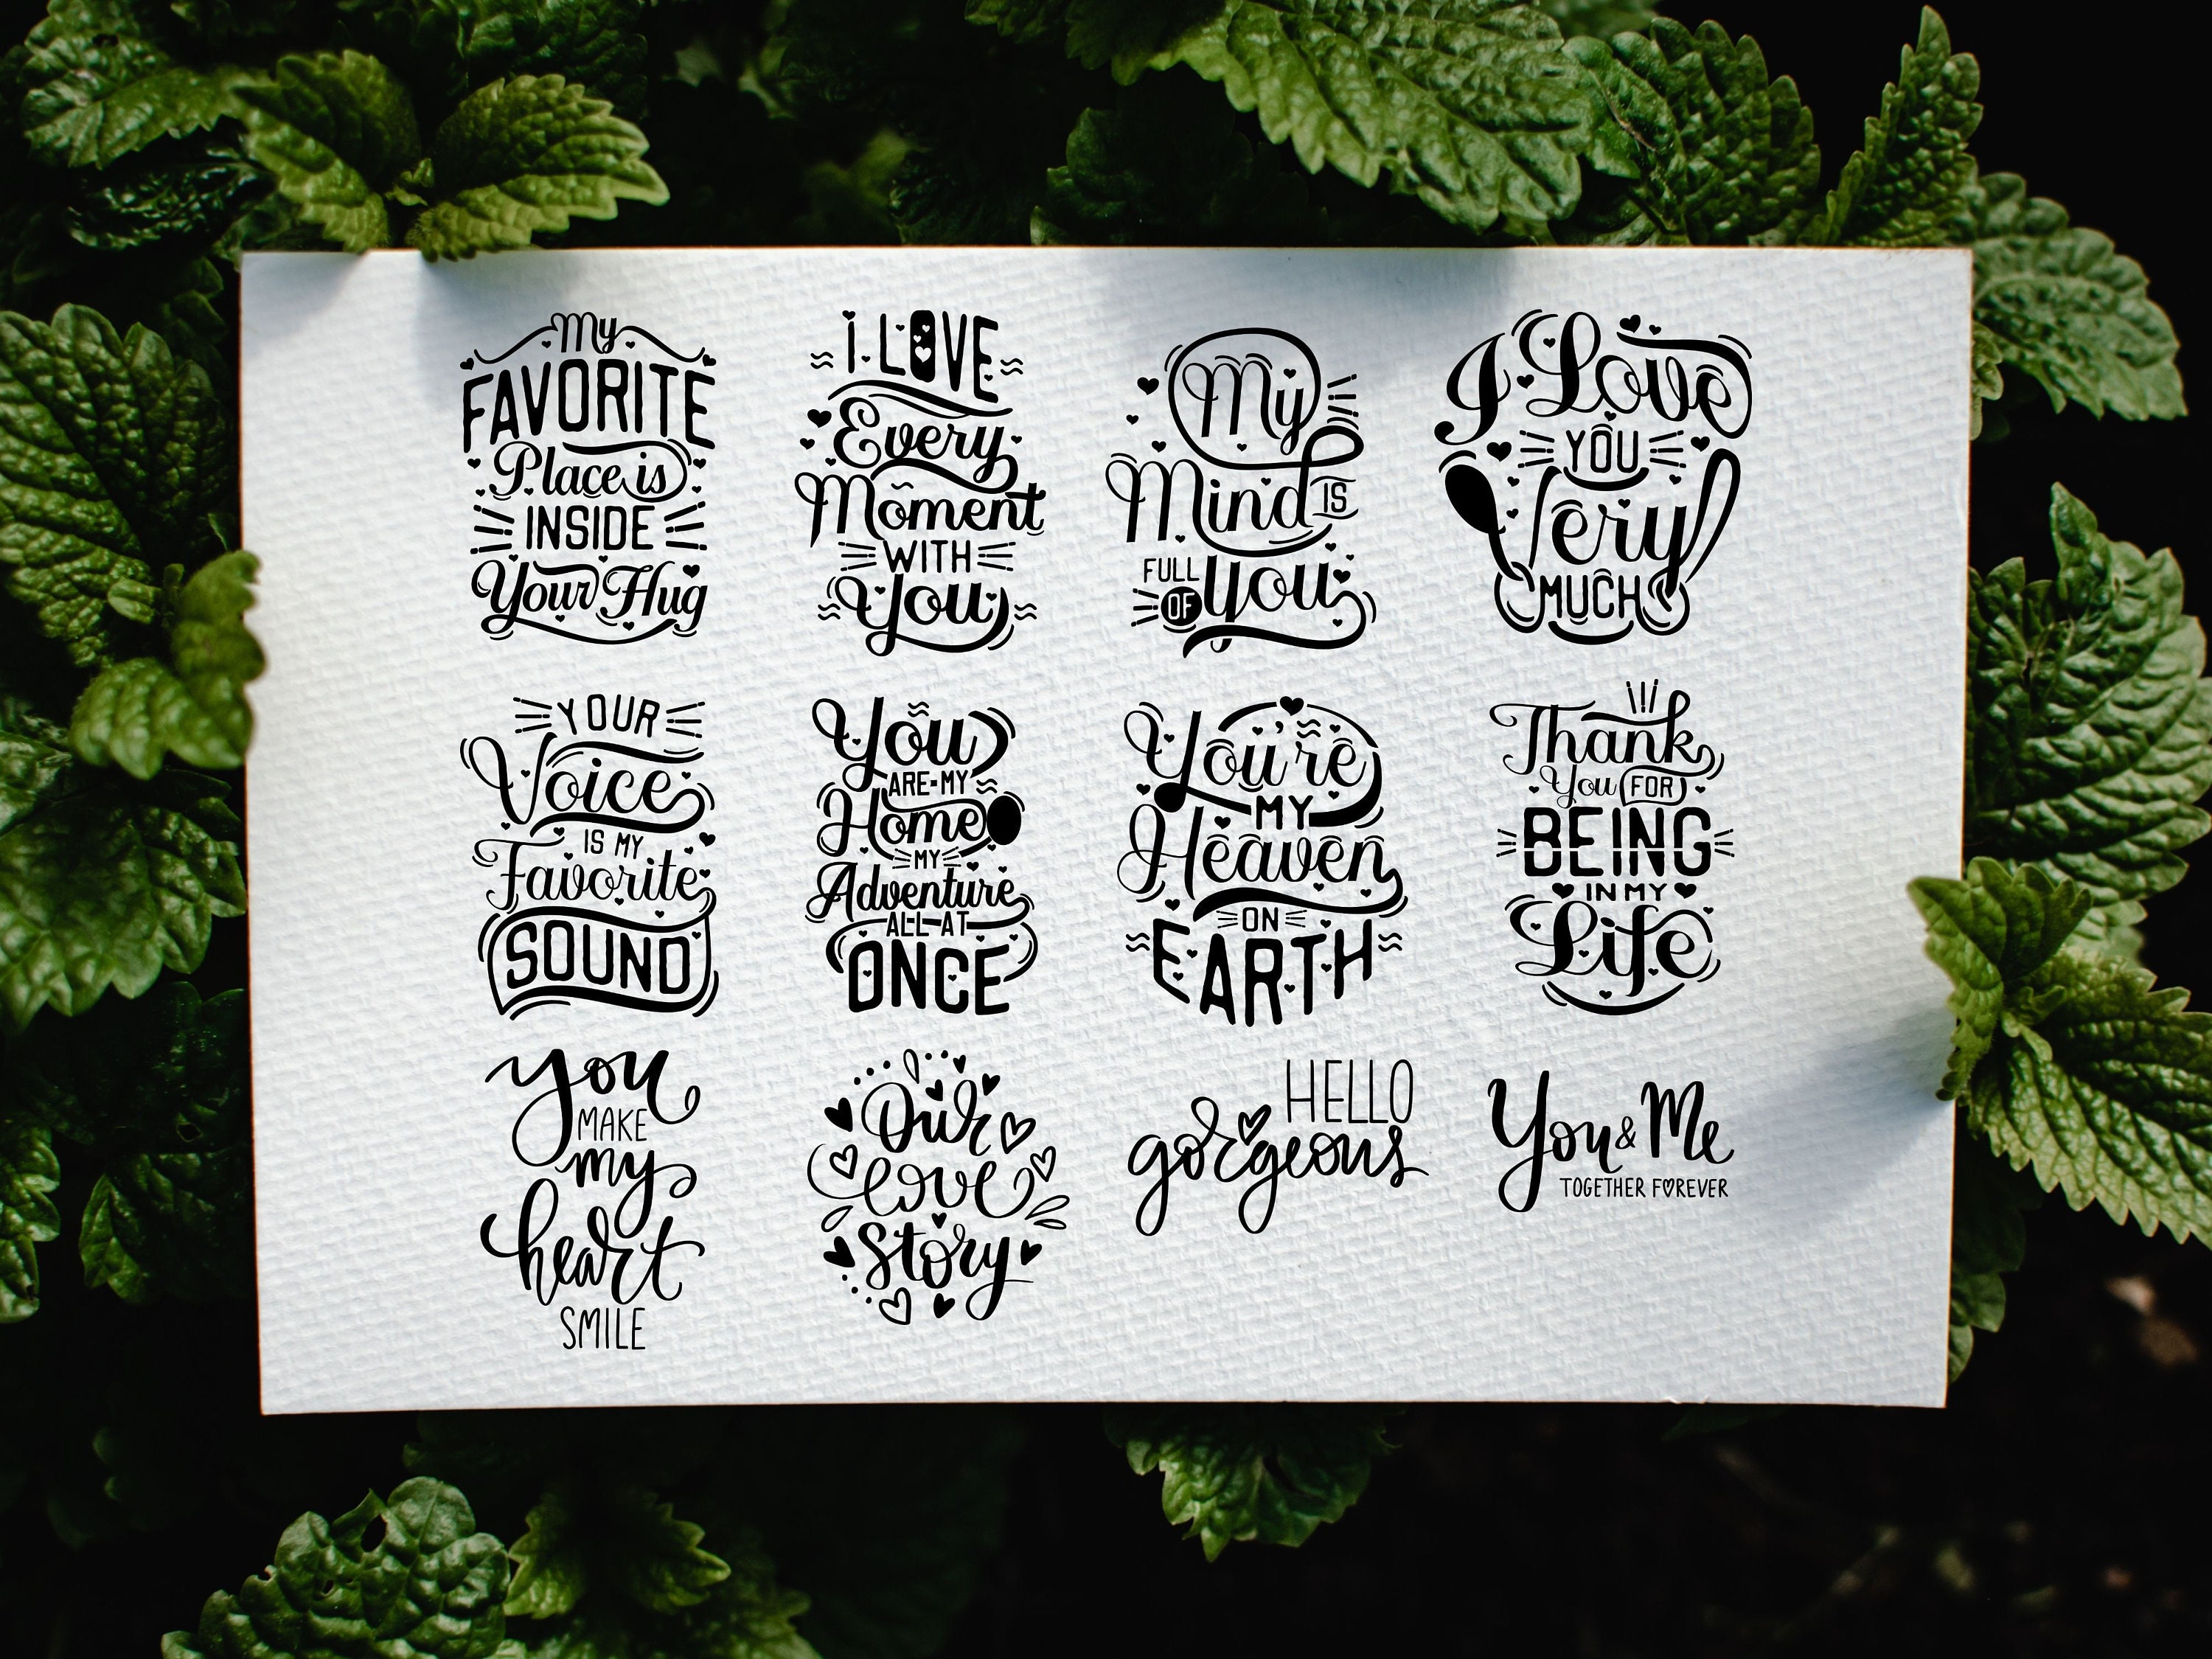 My
FAVORITE
Place is
INSIDE
Your Hug
I LOVE
Every
Moment
WITH
You
My
Mind IS
FULL
OF you
I Love
YOU
Very
MUCH
YOUR
Voice
IS MY
Favorite
SOUND
You
ARE MY
Home
MY
Adventure
ALL AT
ONCE
You're
MY
Heaven
ON
EARTH
Thank
You FOR
BEING
IN MY
Life
you
MAKE
my
heart
SMILE
Our
love
Story
HELLO
gorgeous
You & Me
TOGETHER FOREVER